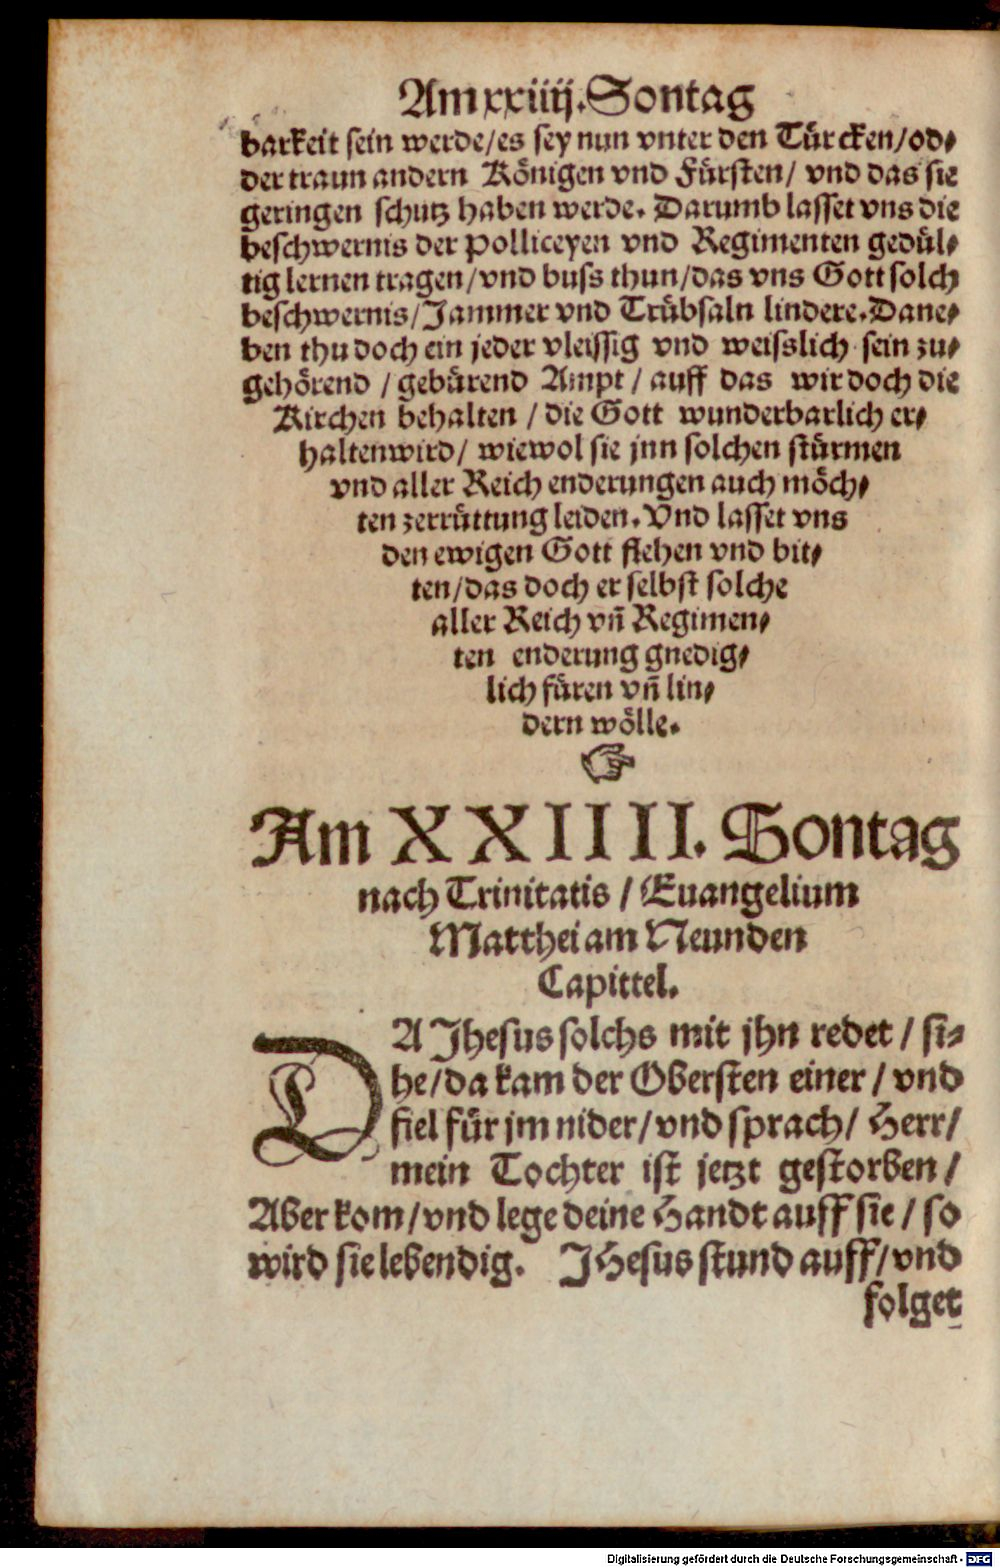 Am xxiiij. Sontag
barkeit sein werde/es sey nun vnter den Türcken/od⸗
der traun andern Königen vnd Fürsten/ vnd das sie
geringen schutz haben werde. Darumb lasset vns die
beschwernis der Polliceyen vnd Regimenten gedül⸗
tig lernen tragen/vnd buss thun/das vns Gott solch
beschwernis/Jammer vnd Trübsaln lindere. Dane⸗
ben thu doch ein jeder vleissig vnd weisslich sein zu⸗
gehörend /gebürend Ampt/ auff das wir doch die
Kirchen behalten / die Gott wunderbarlich er⸗
halten wird/ wiewol sie jnn solchen stürmen
vnd aller Reich enderungen auch möch⸗
ten zerrüttung leiden. Vnd lasset vns
den ewigen Gott flehen vnd bit⸗
ten/das doch er selbst solche
aller Reich vñ Regimen⸗
ten enderung gnedig⸗
lich füren vñ lin⸗
dern wölle.
Am XXIIII. Sontag
nach Trinitatis / Euangelium
Matthei am Neunden
Capittel.
DA Jhesus solchs mit jhn redet / si⸗
he/da kam der Obersten einer / vnd
fiel für jm nider/vnd sprach/ Herr/
mein Tochter ist jetzt gestorben /
Aber kom/vnd lege deine Handt auff sie / so
wird sie lebendig. JHesus stund auff/vnd
folget
Digitalisierung gefördert durch die Deutsche Forschungsgemeinschaft - DFG